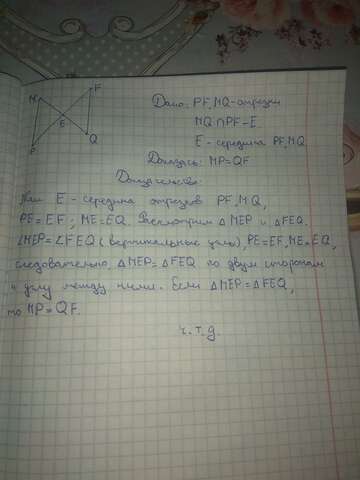 M
F
E
P
Q
Дано: PF, MQ-отрезки
MQ∩PF=E
E - середина PF, MQ
Доказать: MP=QF
Доказательство:
E - середина отрезков PF, MQ,
PE=EF; ME=EQ. Рассмотрим △MEP и △FEQ.
∠MEP=∠FEQ (вертикальные углы), PE=EF, ME=EQ,
следовательно, △MEP=△FEQ по двум сторонам
и углу между ними. Если △MEP=△FEQ,
то MP=QF.
ч.т.д.